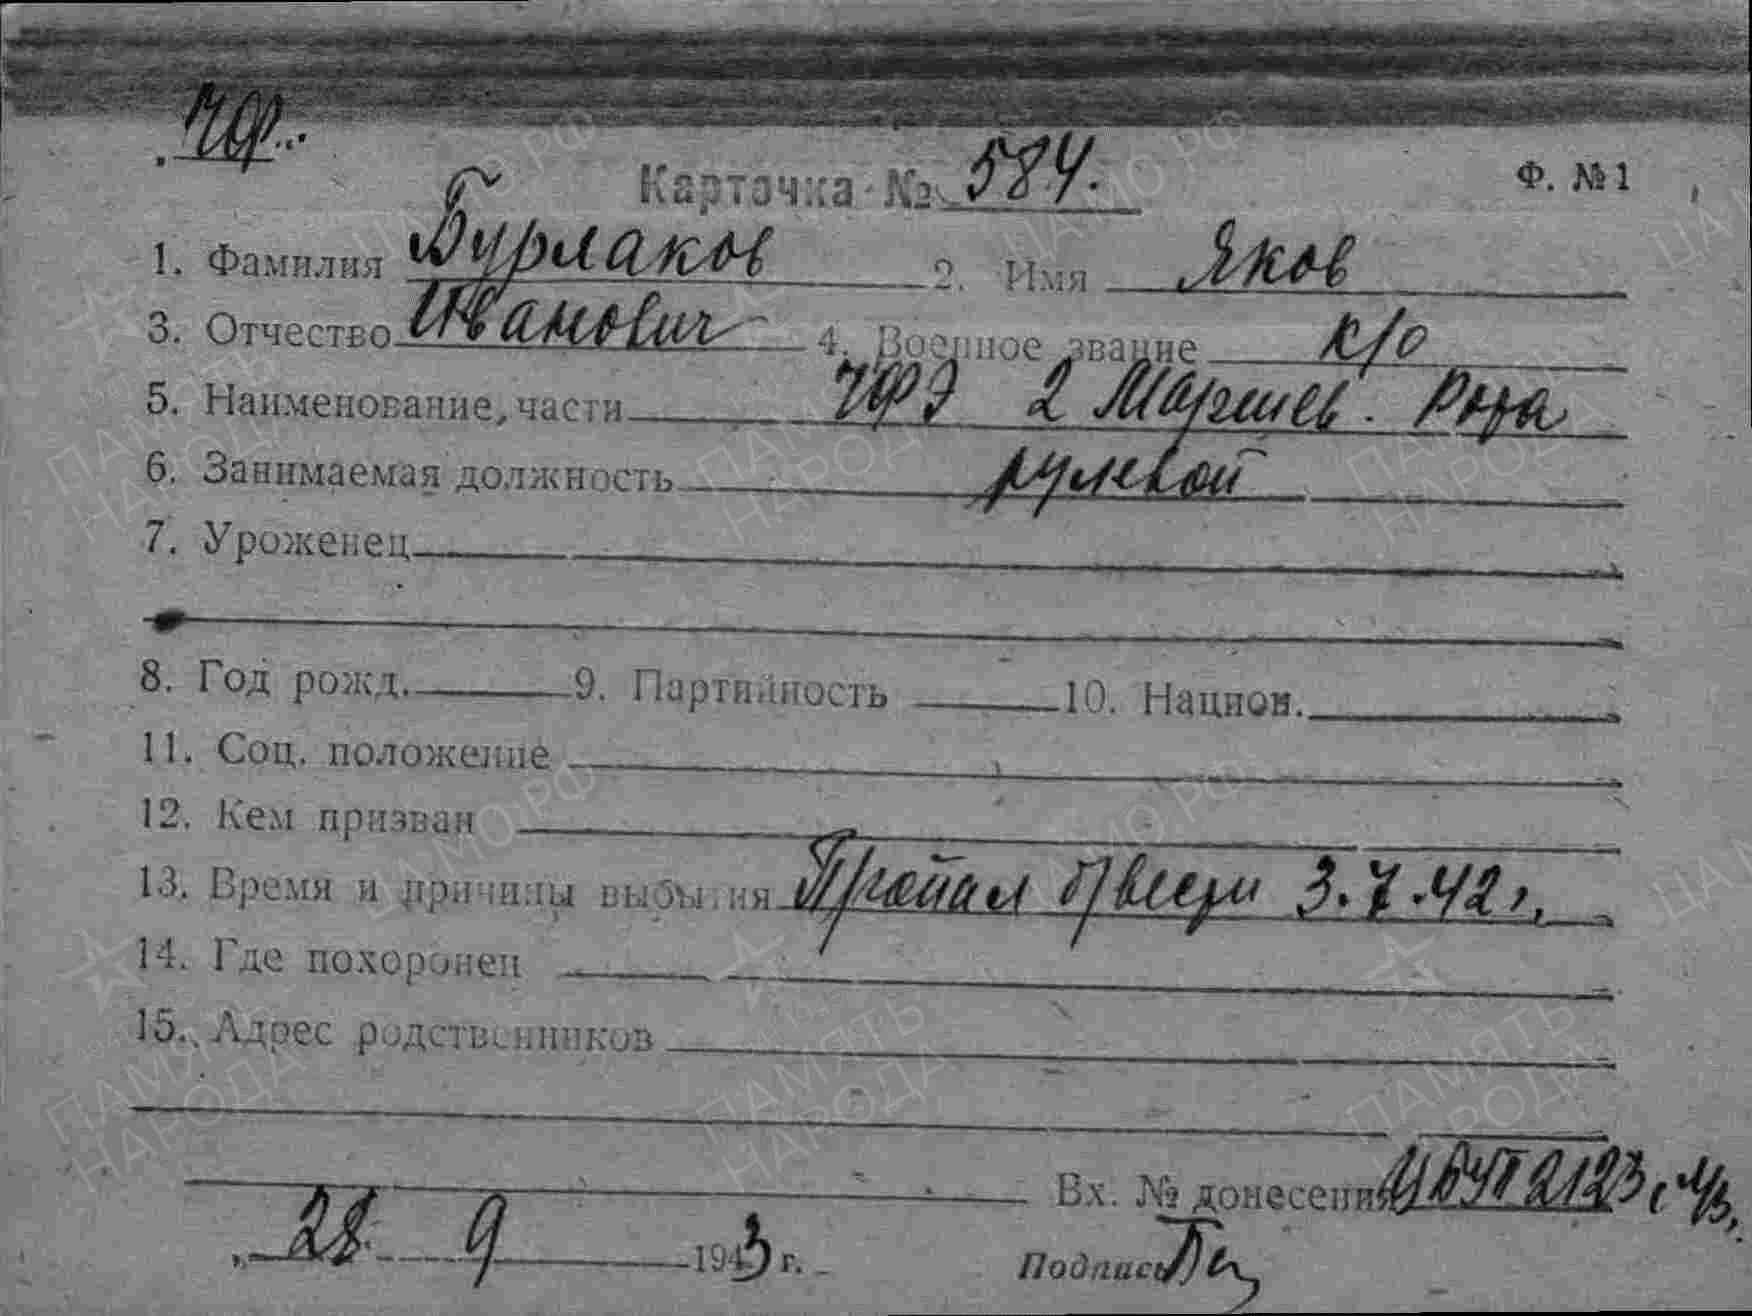 ЧФ.
Карточка № 584. Ф. № 1
1. Фамилия Бурлаков 2. Имя Яков
3. Отчество Иванович 4. Военное звание к/о
5. Наименование, части ЧФЭ 2 Маршев. Рота
6. Занимаемая должность рулевой
7. Уроженец
8. Год рожд. 9. Партийность 10. Национ.
11. Соц. положение
12. Кем призван
13. Время и причины выбытия Пропал б/вести 3.7.42 г.
14. Где похоронен
15. Адрес родственников
Вх. № донесения 2123 с
28 9 1943 г. Подпись
ПАМЯТЬ НАРОДА
ЦАМО.РФ